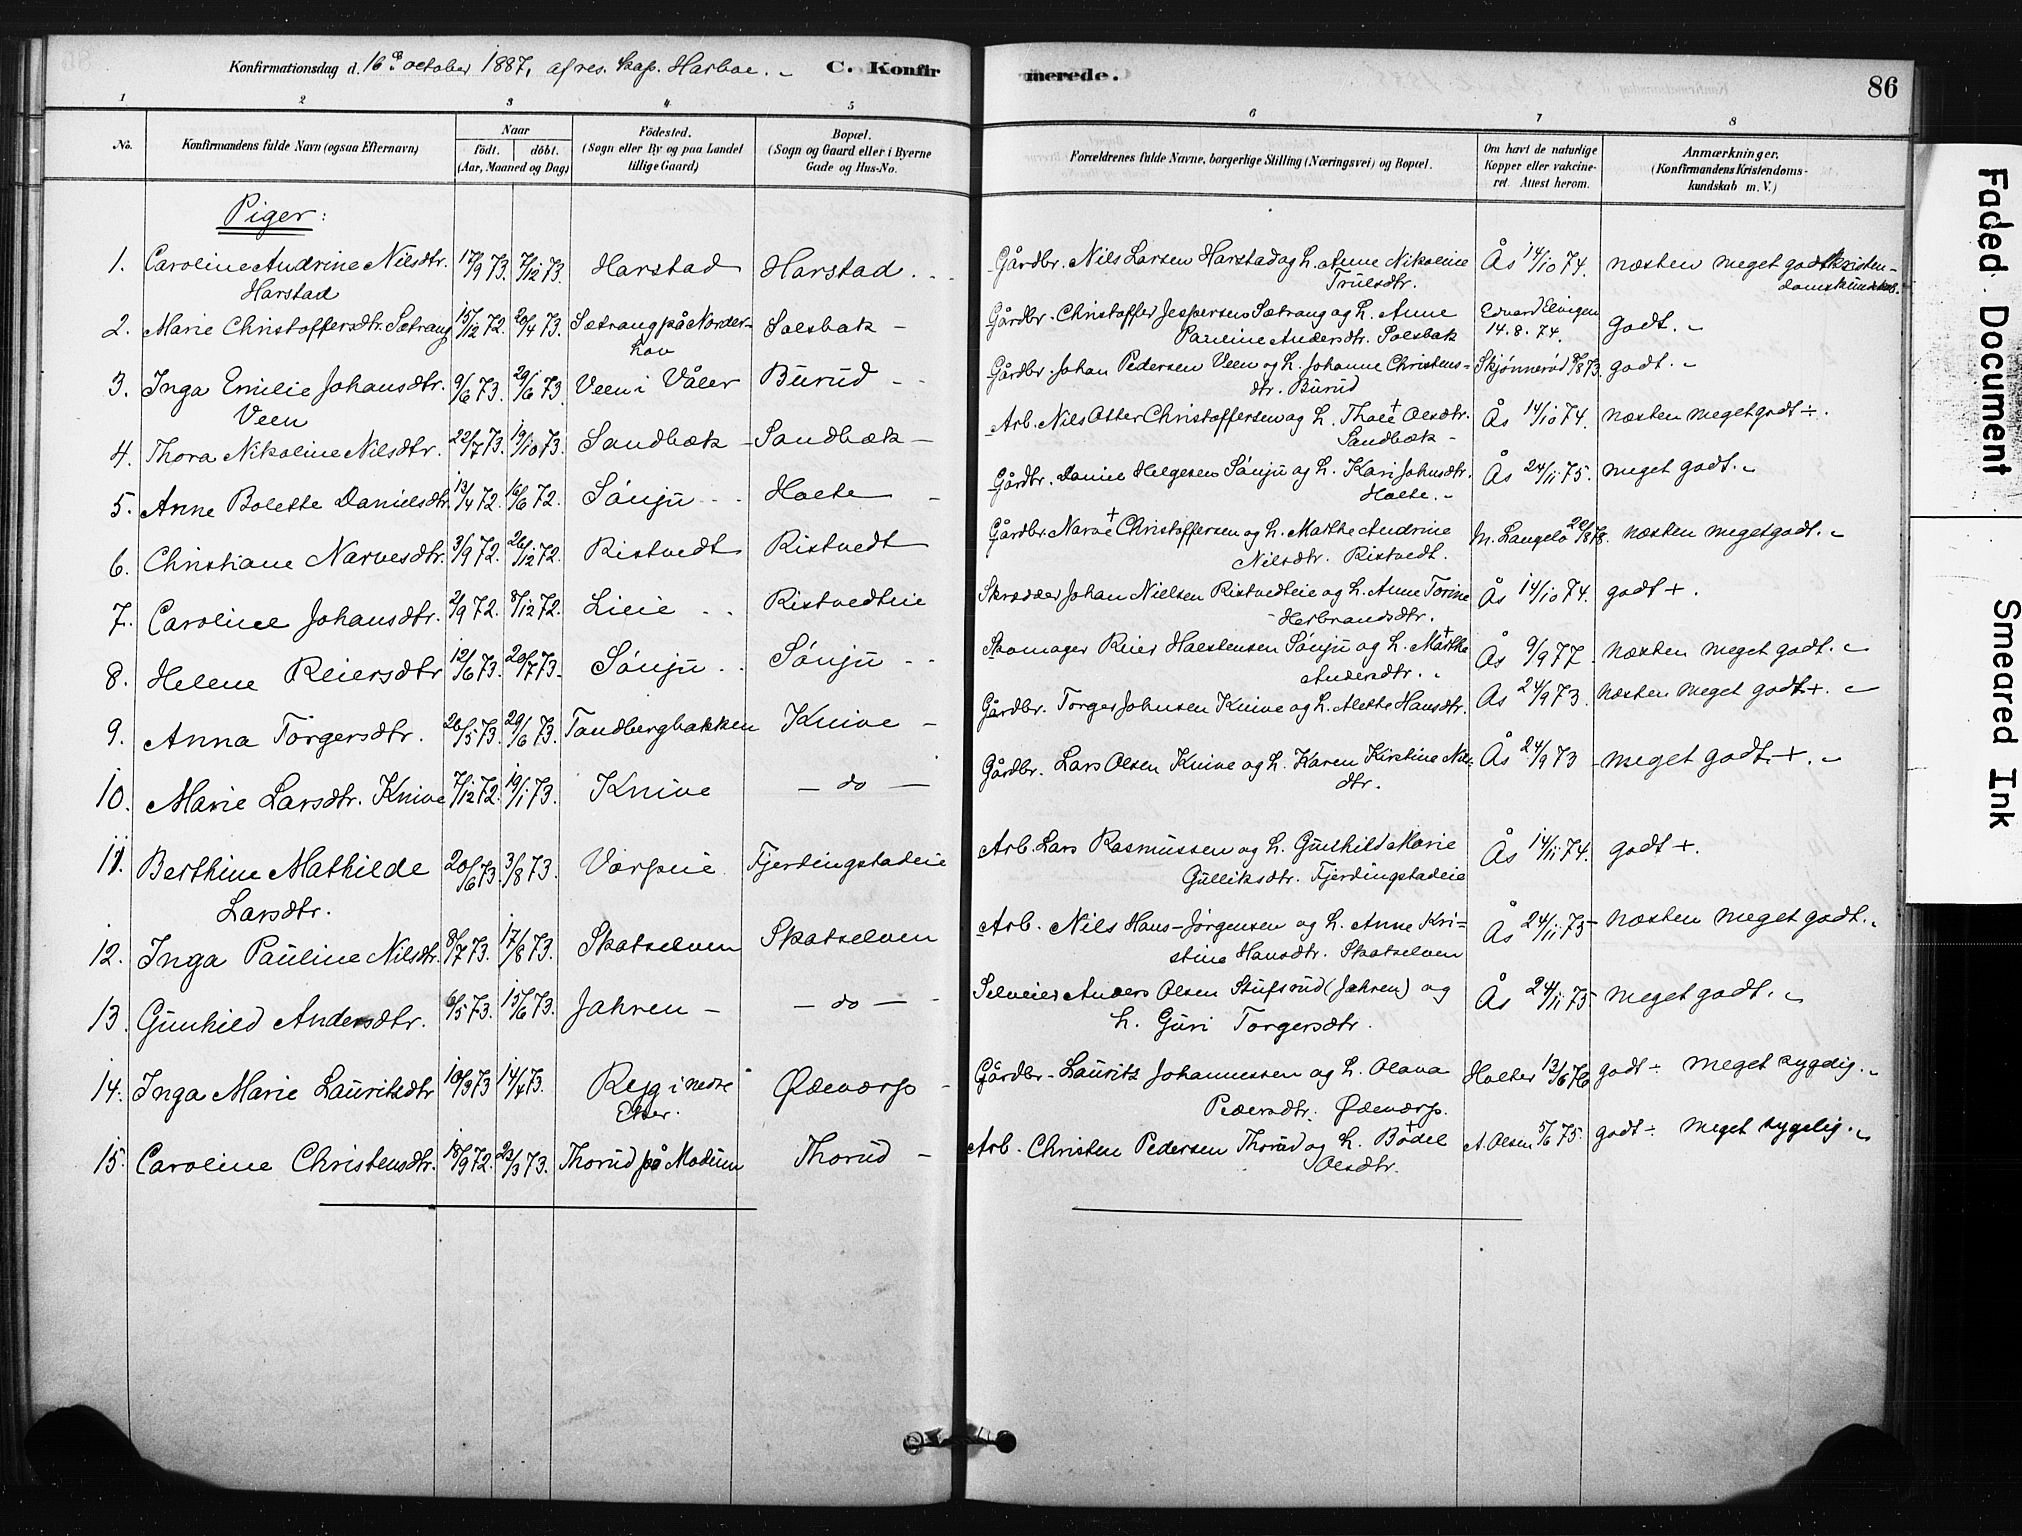 Konfirmationsdag d. 16de october 1887, af res. kap. Harboe. C. Konfirmerede. 86
1 2 3 4 5 6 7 8
No. Konfirmandens fulde Navn (ogsaa Efternavn) Naar født. døbt. (Aar, Maaned og Dag) Födested. (Sogn eller By og paa Landet tillige Gaard) Bopæl. (Sogn og Gaard eller i Byerne Gade og Hus-No. Forældrenes fulde Navne, borgerlige Stilling (Næringsvei) og Bopæl. Om havt de naturlige Kopper eller vakcineret. Attest herom. Anmærkninger. (Konfirmandens Kristendomskundskab m. V.)
Piger:
1. Caroline Andrine Nilsdtr. 17/9 73. 7/12 73. Harstad Harstad. Gårdbr. Nils Larsen Harstad og h. Anne Nikoline Ås 14/10 74. næsten meget godt kristen-
Harstad Trulsdtr. domskundskab.
2. Marie Christoffersdtr. Sætrang 15/12 72. 20/4 73. Setrang på Norder- Solsbak - Gårdbr. Christoffer Jespersen Sætrang og h. Anne Edvard Elvigen godt.
hov Pauline Andersdtr. Solsbak 14.8.74.
3. Inga Emilie Johansdtr. 9/6 73. 29/6 73. Veen i Våler Burud - Gårdbr. Johan Pedersen Veen og h. Johanne Christens- Skjønnerød 8/8 73. godt.
Veen dtr. Burud
4. Thora Nikoline Nilsdtr. 22/7 73. 19/10 73. Sandbæk - Sandbæk - Arb. Nils Otter Christoffersen og h. Thale + Olsdtr. Ås 14/10 74. næsten meget godt ÷.
Sandbæk -
5. Anne Bolette Danielsdtr. 13/4 72. 16/6 72. Sönju Holte - Gårdbr. Daniel Helgesen Sönju og h. Kari Johnsdtr. Ås 24/11 75. meget godt.
Holte.
6. Christiane Narvesdtr. 3/9 72. 26/12 72. Ristvedt Ristvedt Gårdbr. Narve + Christoffersen og h. Marthe Andrine M. Langelö 20/8 78. næsten meget godt.
Nilsdtr. Ristvedt.
7. Caroline Johansdtr. 2/9 72. 8/12 72. Lieie Ristvedteie Skrædder Johan Nielsen Ristvedteie og h. Anne Torine Ås 14/10 74. godt +.
Herbrandsdtr.
8. Helene Reiersdtr 12/6 73. 20/7 73. Sönju Sönju Skomager Reier Halstensen Sönju og h. Marthe + Ås 9/9 77 næsten meget godt.
Andersdtr.
9. Anna Torgersdtr. 26/5 73. 29/6 73. Tandbergbakken Knive - Gårdbr. Torger Johnsen Knive og h. Alette Hansdtr. Ås 24/9 73. næsten meget godt +.
10. Marie Larsdtr. Knive 7/12 72. 19/1 73. Knive - do - Gårdbr. Lars Olsen Knive og h. Karen Kirstine Nils-
dtr. Ås 24/9 73 meget godt +.
11. Berthine Mathilde 20/6 73. 3/8 73. Vorpeie Fjerdingstadeie Arb. Lars Rasmussen og h. Gunhild Marie Ås 14/11 74. godt +.
Larsdtr. Gulliksdtr. Fjerdingstadeie
12. Inga Pauline Nilsdtr. 8/7 73. 17/8 73. Skotselven Skotselven Arb. Nils Hans-Jørgensen og h. Anne Kri- Ås 24/11 75 næsten meget godt.
stine Hansdtr. Skotselven
13. Gunhild Andersdtr. 6/5 73. 15/6 73. Jahren - - do - Selveier Anders Olsen Stufsrud (Jahren) og Ås 24/11 75 meget godt.
h. Guri Torgersdtr.
14. Inga Marie Lauritsdtr 10/3 73 14/4 73. Rygg i nedre Ødevorp - Gårdbr. Lauritz Johannessen og h. Olava Holter 13/6 76 godt ÷ meget sygelig.
Eker. Pedersdtr. Ødevorp.
15. Caroline Christensdtr. 18/9 72. 23/3 73. Thorud på Modum Thorud - Arb. Christen Pedersen Thorud og h. Bodel + A. Olsen 5/6 75. godt ÷ meget sygelig.
Olsdtr.
Faded Document
Smeared Ink